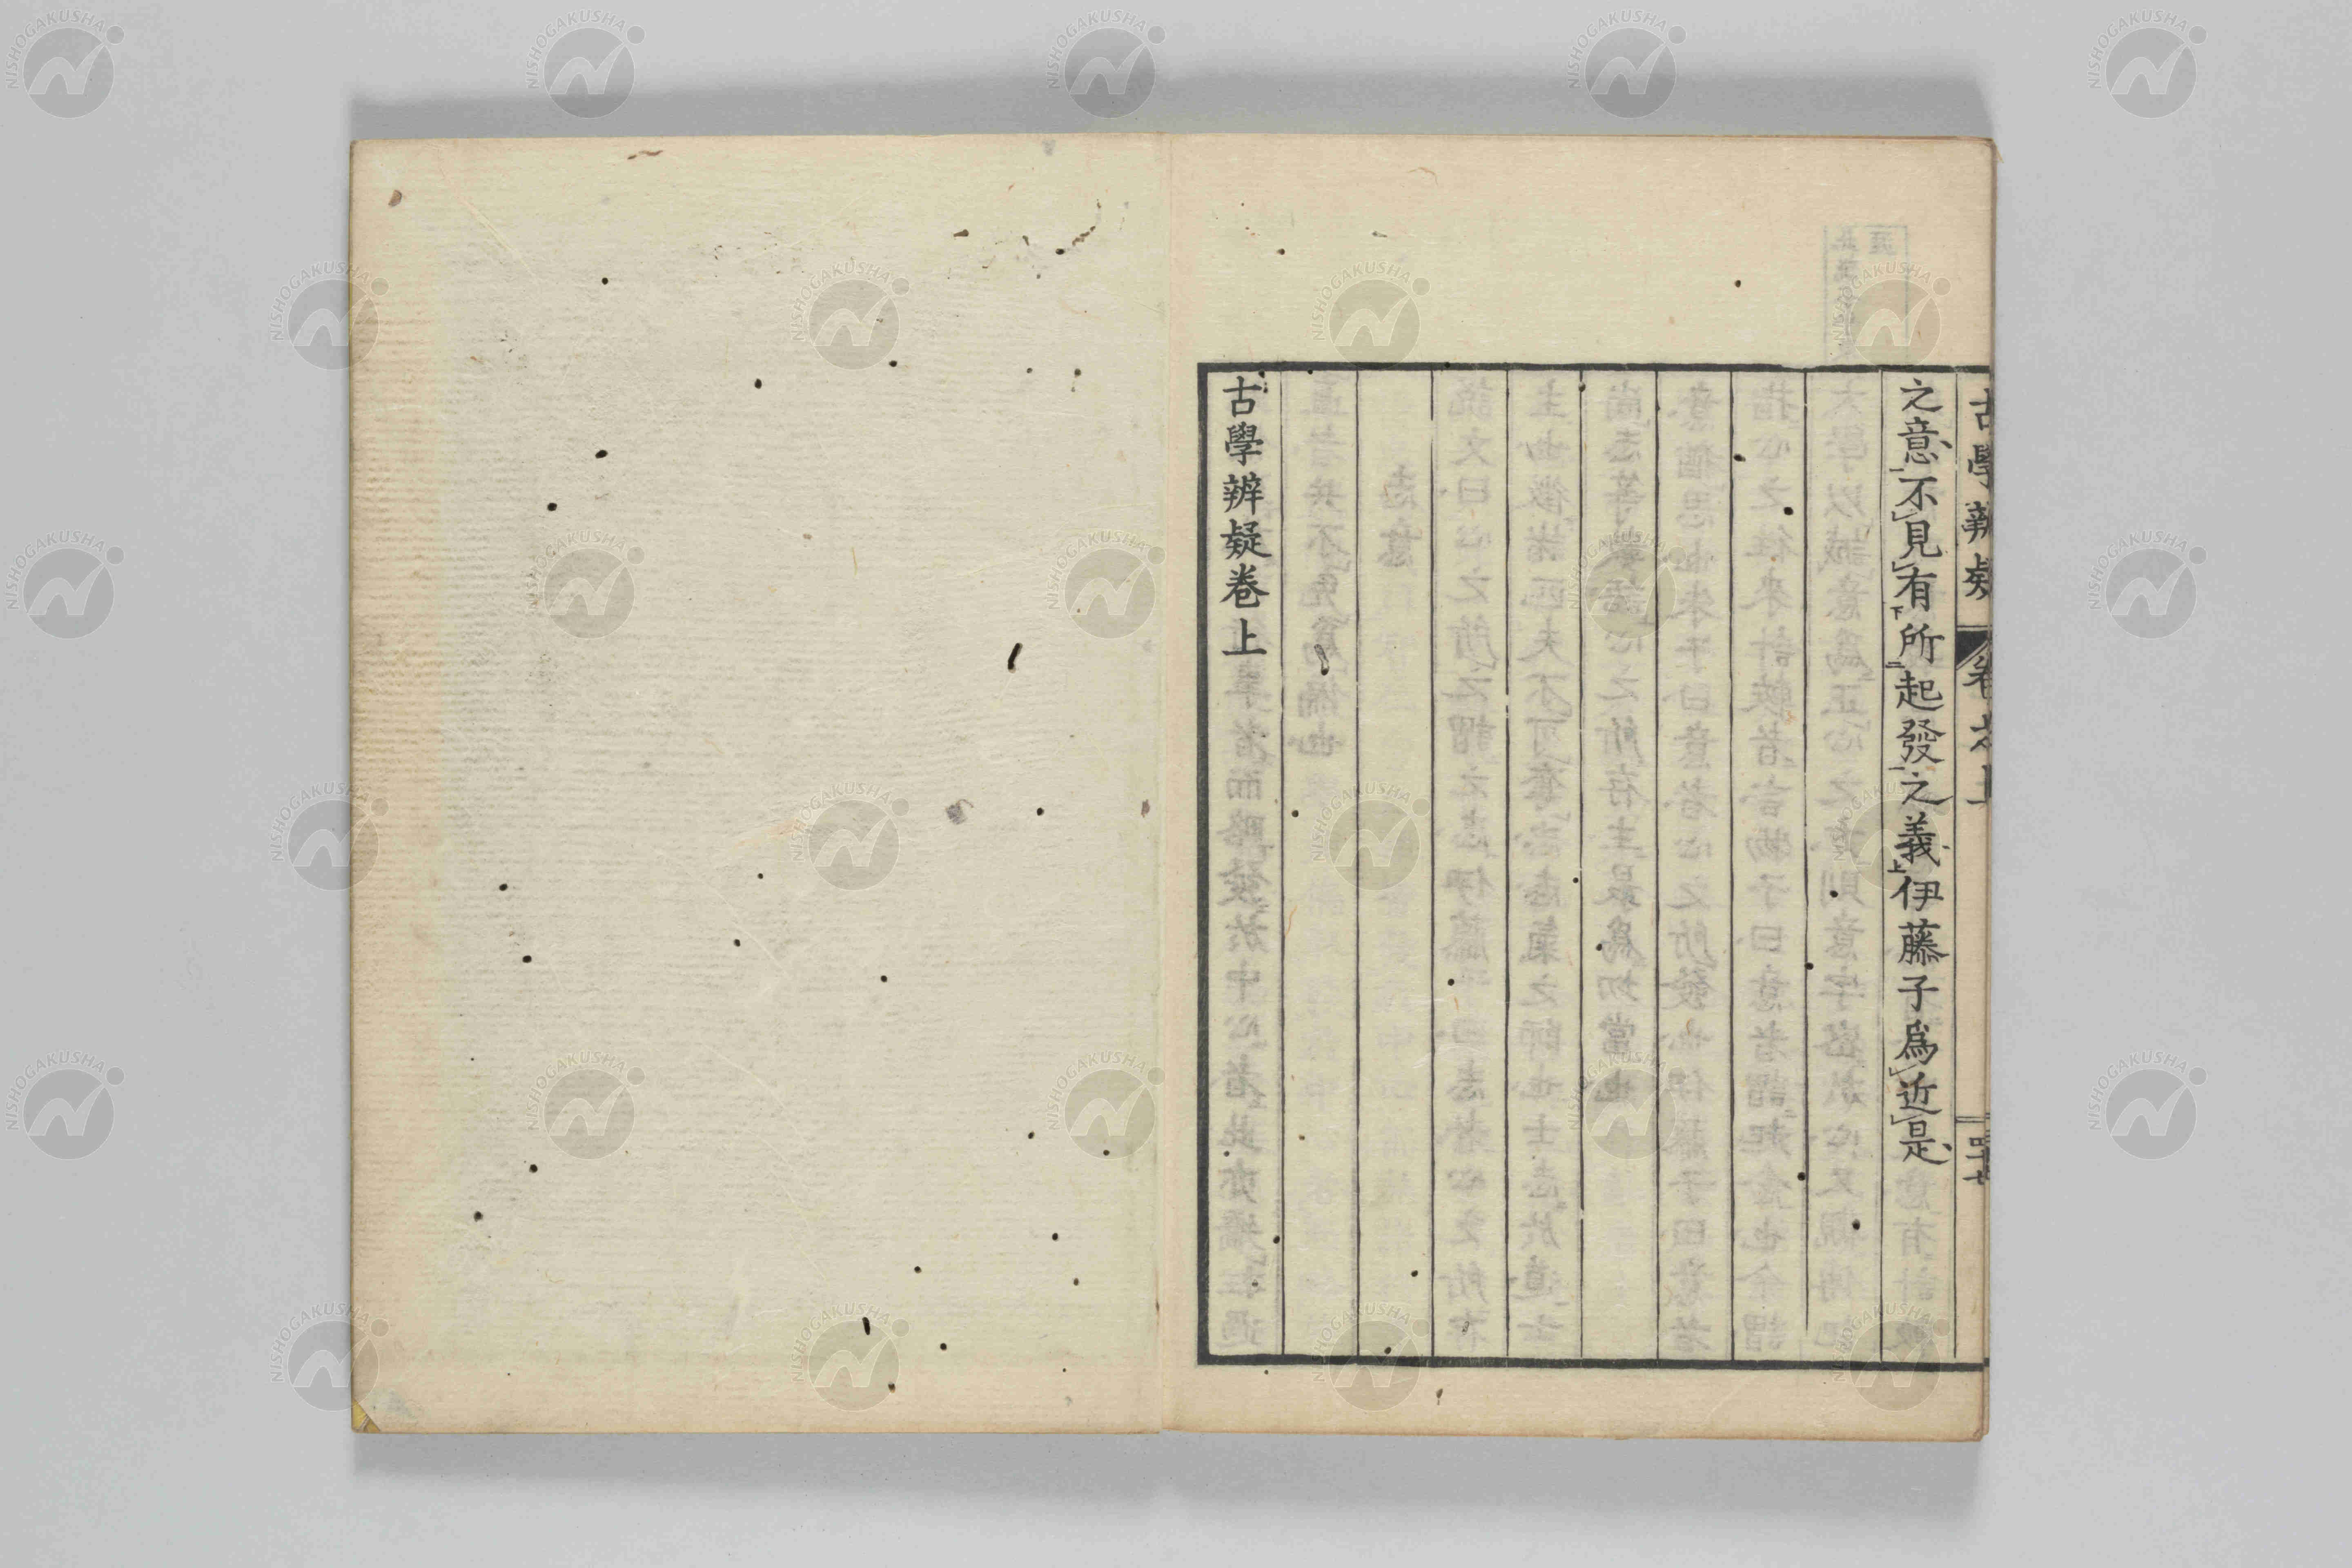 古學辨疑 卷之上 四十七
之意不見有所起發之義伊藤子爲近是
古學辨疑卷上
NISHOGAKUSHA